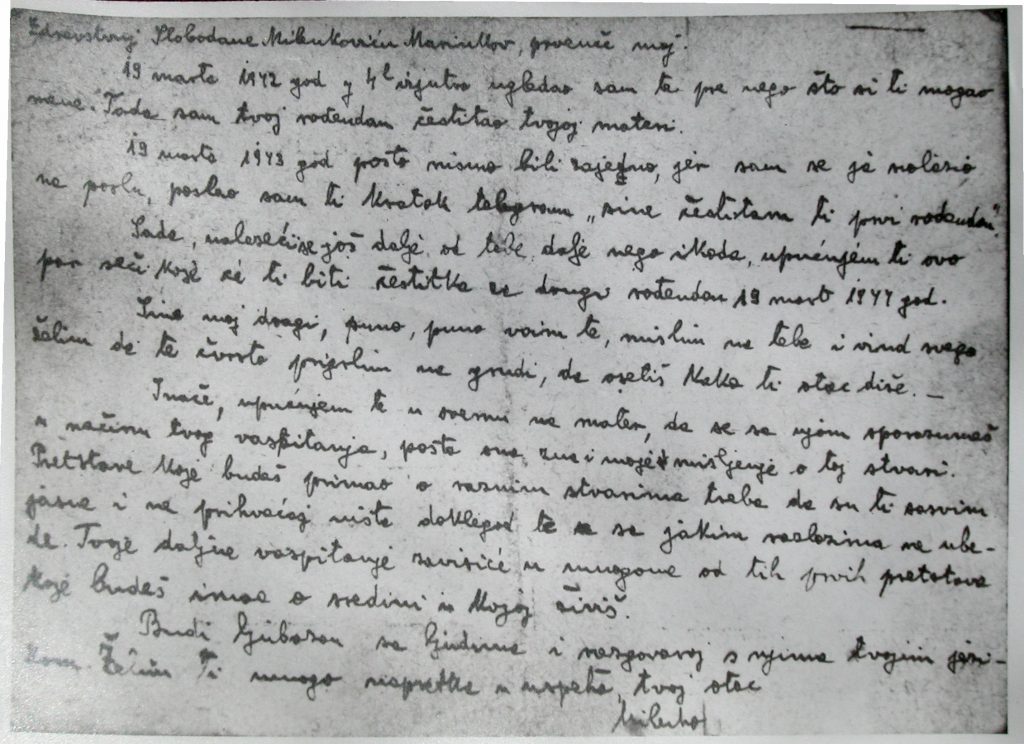 Zdravstvuj Slobodane Milenkoviću Marinkov, prvenče moj.
19 marta 1942 god u 4h ujutro ugledao sam te pre nego što si ti mogao
mene. Tada sam tvoj rođendan čestitao tvojoj materi.
19 marta 1943 god pošto nismo bili zajedno, jer sam se ja nalazio
na poslu, poslao sam ti kratak telegram „sine čestitam ti prvi rođendan“.
Sada, nalazeći se još dalje od tebe, dalje nego ikada, upućujem ti ovo
par reči koje će ti biti čestitka za drugi rođendan 19 mart 1944 god.
Sine moj dragi, puno, puno volim te, mislim na tebe i vind svega
želim da te čvrsto prigrlim na grudi, da osetiš kako ti otac diše. —
Inače, upućujem te u svemu na mater, da se sa njom sporazumeš
u načinu tvog vaspitanja, pošto ona zna i moje mišljenje o toj stvari.
Pretstave koje budeš primao o raznim stvarima treba da su ti sasvim
jasne i ne prihvaćaj ništa doklegod te se sa jakim razlozima ne ube-
de. Tvoje daljne vaspitanje zavisiće u mnogome od tih prvih pretstava
koje budeš imao o sredini u kojoj živiš.
Budi ljubazan sa ljudima i razgovaraj s njima tvojim jezi-
kom. Želim ti mnogo napretka u uspeha, tvoj otac
Milenko